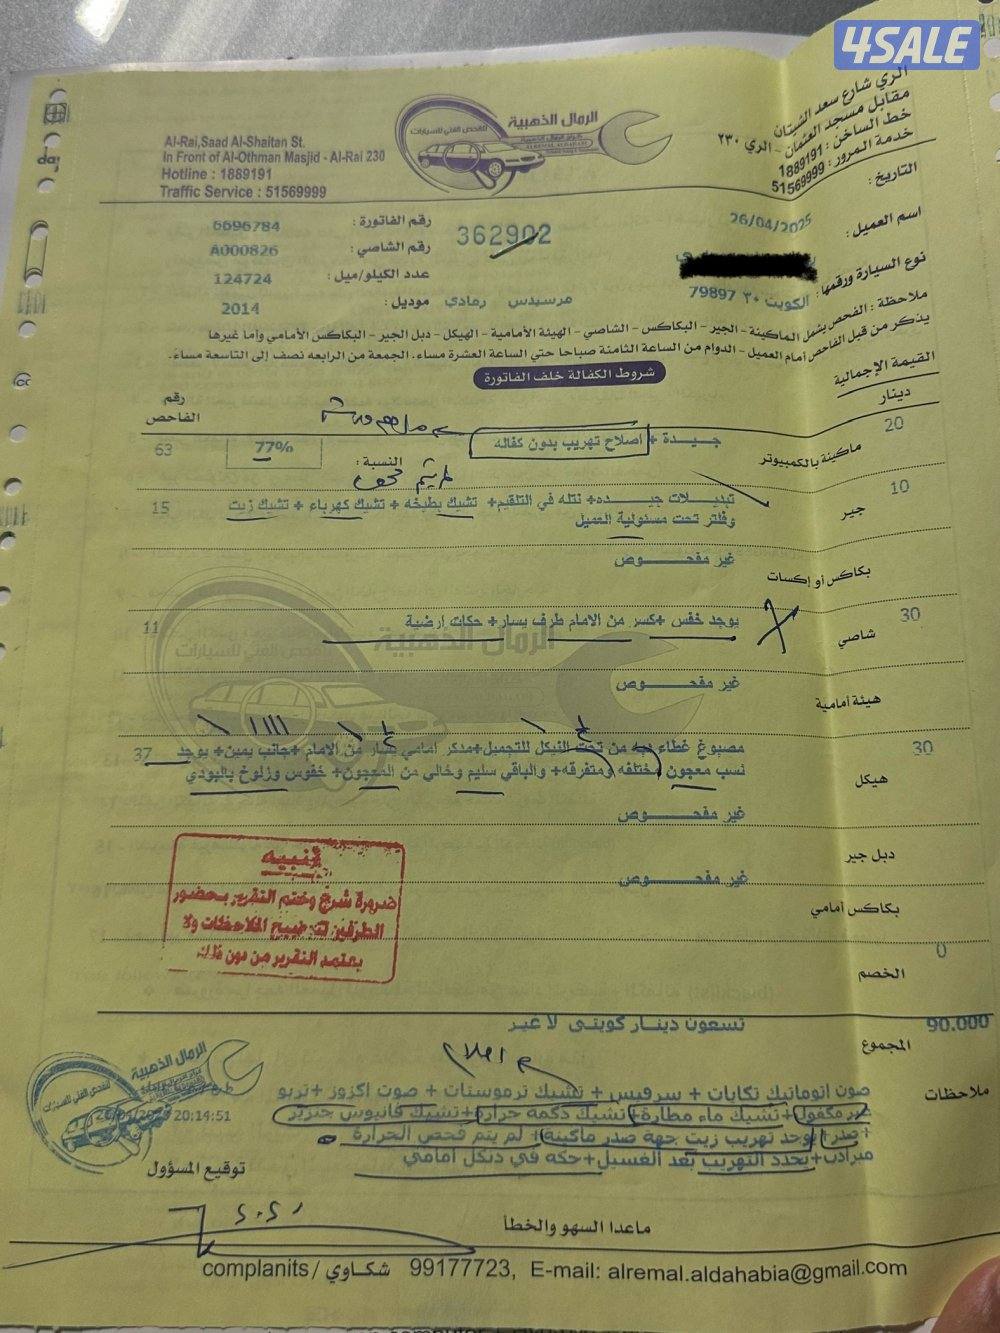 4SALE
الري شارع سعد الشيتان
مقابل مسجد العثمان - الري ٢٣٠
خط الساخن : 1889191
خدمة المرور : 51569999
الرمال الذهبية
للفحص الفني للسيارات
Al-Rai,Saad Al-Shaitan St.
In Front of Al-Othman Masjid - Al-Rai 230
Hotline : 1889191
Traffic Service : 51569999
التاريخ : 26/04/2025
362902
رقم الفاتورة : 6696784
اسم العميل :
رقم الشاصي : A000826
نوع السيارة ورقمها : الكويت ٣٠ 79897
عدد الكيلو/ميل : 124724
مرسيدس رمادي
موديل : 2014
ملاحظة : الفحص يشمل الماكينة - الجير - البكاكس - الشاصي - الهيئة الأمامية - الهيكل - دبل الجير - البكاكس الأمامي وأما غيرها
يذكر من قبل الفاحص أمام العميل - الدوام من الساعة الثامنة صباحا حتي الساعة العشرة مساء. الجمعة من الرابعه نصف إلى التاسعة مساءً.
شروط الكفالة خلف الفاتورة
القيمة الإجمالية
دينار
رقم الفاحص
20
ماكينة بالكمبيوتر
جيــدة + اصلاح تهريب بدون كفاله
النسبة : 77%
63
10
جير
تبديــلات جيــده+ نتله في التلقيم+ تشيك بطيخه + تشيك كهرباء + تشيك زيت
وفلتر تحت مسئولية العميل
15
بكاكس أو إكسات
غير مفحــوص
30
شاصي
يوجد خفس +كسر من الامام طرف يسار+ حكات ارضية
11
هيئة أمامية
غير مفحــوص
30
هيكل
مصبوغ غطاء دبه من تحت النيكل للتجميل+مدكر امامي يسار من الامام +جانب يمين+ يوجد
نسب معجون مختلفه ومتفرقه+ والباقي سليم وخالي من المعجون+ خفوس وزلوخ بالبودي
37
دبل جير
غير مفحــوص
بكاكس أمامي
غير مفحــوص
الخصم
0
تنبيه
ضرورة شرح وختم التقرير بحضور
الطرفين لتوضيح الملاحظات ولا
يعتمد التقرير من دون ذلك
90.000
المجموع
تسعون دينار كويتى لا غير
ملاحظات
صوت اتوماتيك تكايات + سرفيس + تشيك ترموستات + صوت اكزوز +تربو
غير مكفول+ تشيك ماء مطارة+ تشيك دكمة حرارة+ تشيك فانيوس جنزير
+صدر+ يوجد تهريب زيت جهة صدر ماكينة+ لم يتم فحص الحرارة
+يحدد التهريب بعد الغسيل+ حكه في دنكل امامي
الرمال الذهبية
20:14:51
توقيع المسؤول
ماعدا السهو والخطأ
complanits / شكاوي 99177723, E-mail: alremal.aldahabia@gmail.com